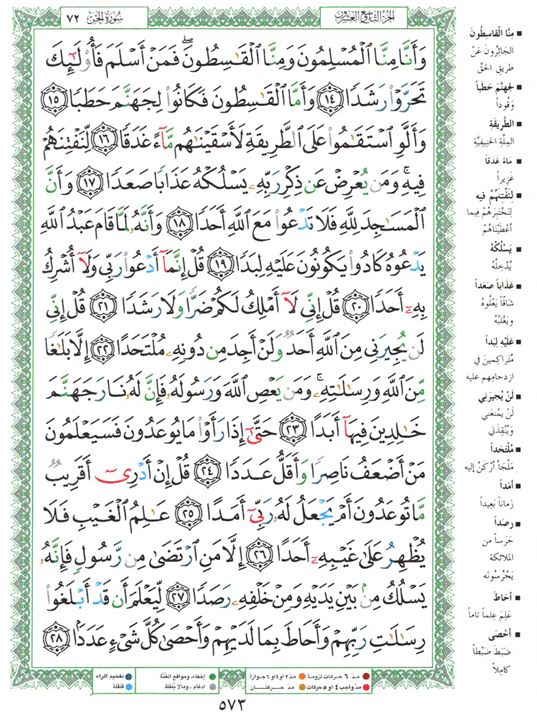 الجزء التاسع والعشرون
سورة الجن
٧٢
وَأَنَّا مِنَّا ٱلْمُسْلِمُونَ وَمِنَّا ٱلْقَـٰسِطُونَ ۖ فَمَنْ أَسْلَمَ فَأُو۟لَـٰٓئِكَ
تَحَرَّوْا۟ رَشَدًا ١٤ وَأَمَّا ٱلْقَـٰسِطُونَ فَكَانُوا۟ لِجَهَنَّمَ حَطَبًا ١٥
وَأَلَّوِ ٱسْتَقَـٰمُوا۟ عَلَى ٱلطَّرِيقَةِ لَأَسْقَيْنَـٰهُم مَّآءً غَدَقًا ١٦ لِّنَفْتِنَهُمْ
فِيهِ ۚ وَمَن يُعْرِضْ عَن ذِكْرِ رَبِّهِۦ يَسْلُكْهُ عَذَابًا صَعَدًا ١٧ وَأَنَّ
ٱلْمَسَـٰجِدَ لِلَّهِ فَلَا تَدْعُوا۟ مَعَ ٱللَّهِ أَحَدًا ١٨ وَأَنَّهُۥ لَمَّا قَامَ عَبْدُ ٱللَّهِ
يَدْعُوهُ كَادُوا۟ يَكُونُونَ عَلَيْهِ لِبَدًا ١٩ قُلْ إِنَّمَآ أَدْعُوا۟ رَبِّى وَلَآ أُشْرِكُ
بِهِۦٓ أَحَدًا ٢٠ قُلْ إِنِّى لَآ أَمْلِكُ لَكُمْ ضَرًّا وَلَا رَشَدًا ٢١ قُلْ إِنِّى
لَن يُجِيرَنِى مِنَ ٱللَّهِ أَحَدٌ وَلَنْ أَجِدَ مِن دُونِهِۦ مُلْتَحَدًا ٢٢ إِلَّا بَلَـٰغًا
مِّنَ ٱللَّهِ وَرِسَـٰلَـٰتِهِۦ ۚ وَمَن يَعْصِ ٱللَّهَ وَرَسُولَهُۥ فَإِنَّ لَهُۥ نَارَ جَهَنَّمَ
خَـٰلِدِينَ فِيهَآ أَبَدًا ٢٣ حَتَّىٰٓ إِذَا رَأَوْا۟ مَا يُوعَدُونَ فَسَيَعْلَمُونَ
مَنْ أَضْعَفُ نَاصِرًا وَأَقَلُّ عَدَدًا ٢٤ قُلْ إِنْ أَدْرِىٓ أَقَرِيبٌ
مَّا تُوعَدُونَ أَمْ يَجْعَلُ لَهُۥ رَبِّىٓ أَمَدًا ٢٥ عَـٰلِمُ ٱلْغَيْبِ فَلَا
يُظْهِرُ عَلَىٰ غَيْبِهِۦٓ أَحَدًا ٢٦ إِلَّا مَنِ ٱرْتَضَىٰ مِن رَّسُولٍ فَإِنَّهُۥ
يَسْلُكُ مِنۢ بَيْنِ يَدَيْهِ وَمِنْ خَلْفِهِۦ رَصَدًا ٢٧ لِّيَعْلَمَ أَن قَدْ أَبْلَغُوا۟
رِسَـٰلَـٰتِ رَبِّهِمْ وَأَحَاطَ بِمَا لَدَيْهِمْ وَأَحْصَىٰ كُلَّ شَىْءٍ عَدَدًۢا ٢٨
مِنَّا الْقَاسِطُونَ
الجَائِرُونَ عَنْ
طريقِ الحَقِّ
لِجَهَنَّمَ حَطَباً
وَقُوداً
الطَّرِيقَةِ
المِلَّةِ الحَنِيفِيَّةِ
مَاءً غَدَقاً
غَزِيراً
لِنَفْتِنَهُمْ فِيهِ
لِنَخْتَبِرَهُمْ فِيما
أَعْطَيْنَاهُمْ
يَسْلُكْهُ
يُدْخِلْهُ
عَذَاباً صَعَداً
شَاقّاً يَعْلُوهُ
وَيَغْلِبُهُ
عَلَيْهِ لِبَداً
مُتَرَاكِمِينَ في
ازدحامِهِم عليه
لَنْ يُجِيرَنِي
لَنْ يَمْنَعَني
وَيُنْقِذَني
مُلْتَحَداً
مَلْجَأً أَرْكَنُ إِليه
أَمَداً
زَماناً بَعِيداً
رَصَداً
حَرَساً من
الملائكة
يَحْرُسُونَه
أَحَاطَ
عَلِمَ عِلْماً تاماً
أَحْصَى
ضَبَطَ ضَبْطاً
كامِلاً
مدّ ٦ حركات لزوماً
مدّ ٢ أو ٤ أو ٦ جوازاً
إخفاء، ومواقع الغُنَّة
تفخيم الراء
مدّ واجب ٤ أو ٥ حركات
مدّ حركتان
ادغام، وما لا يُلفظ
قلقلة
٥٧٣